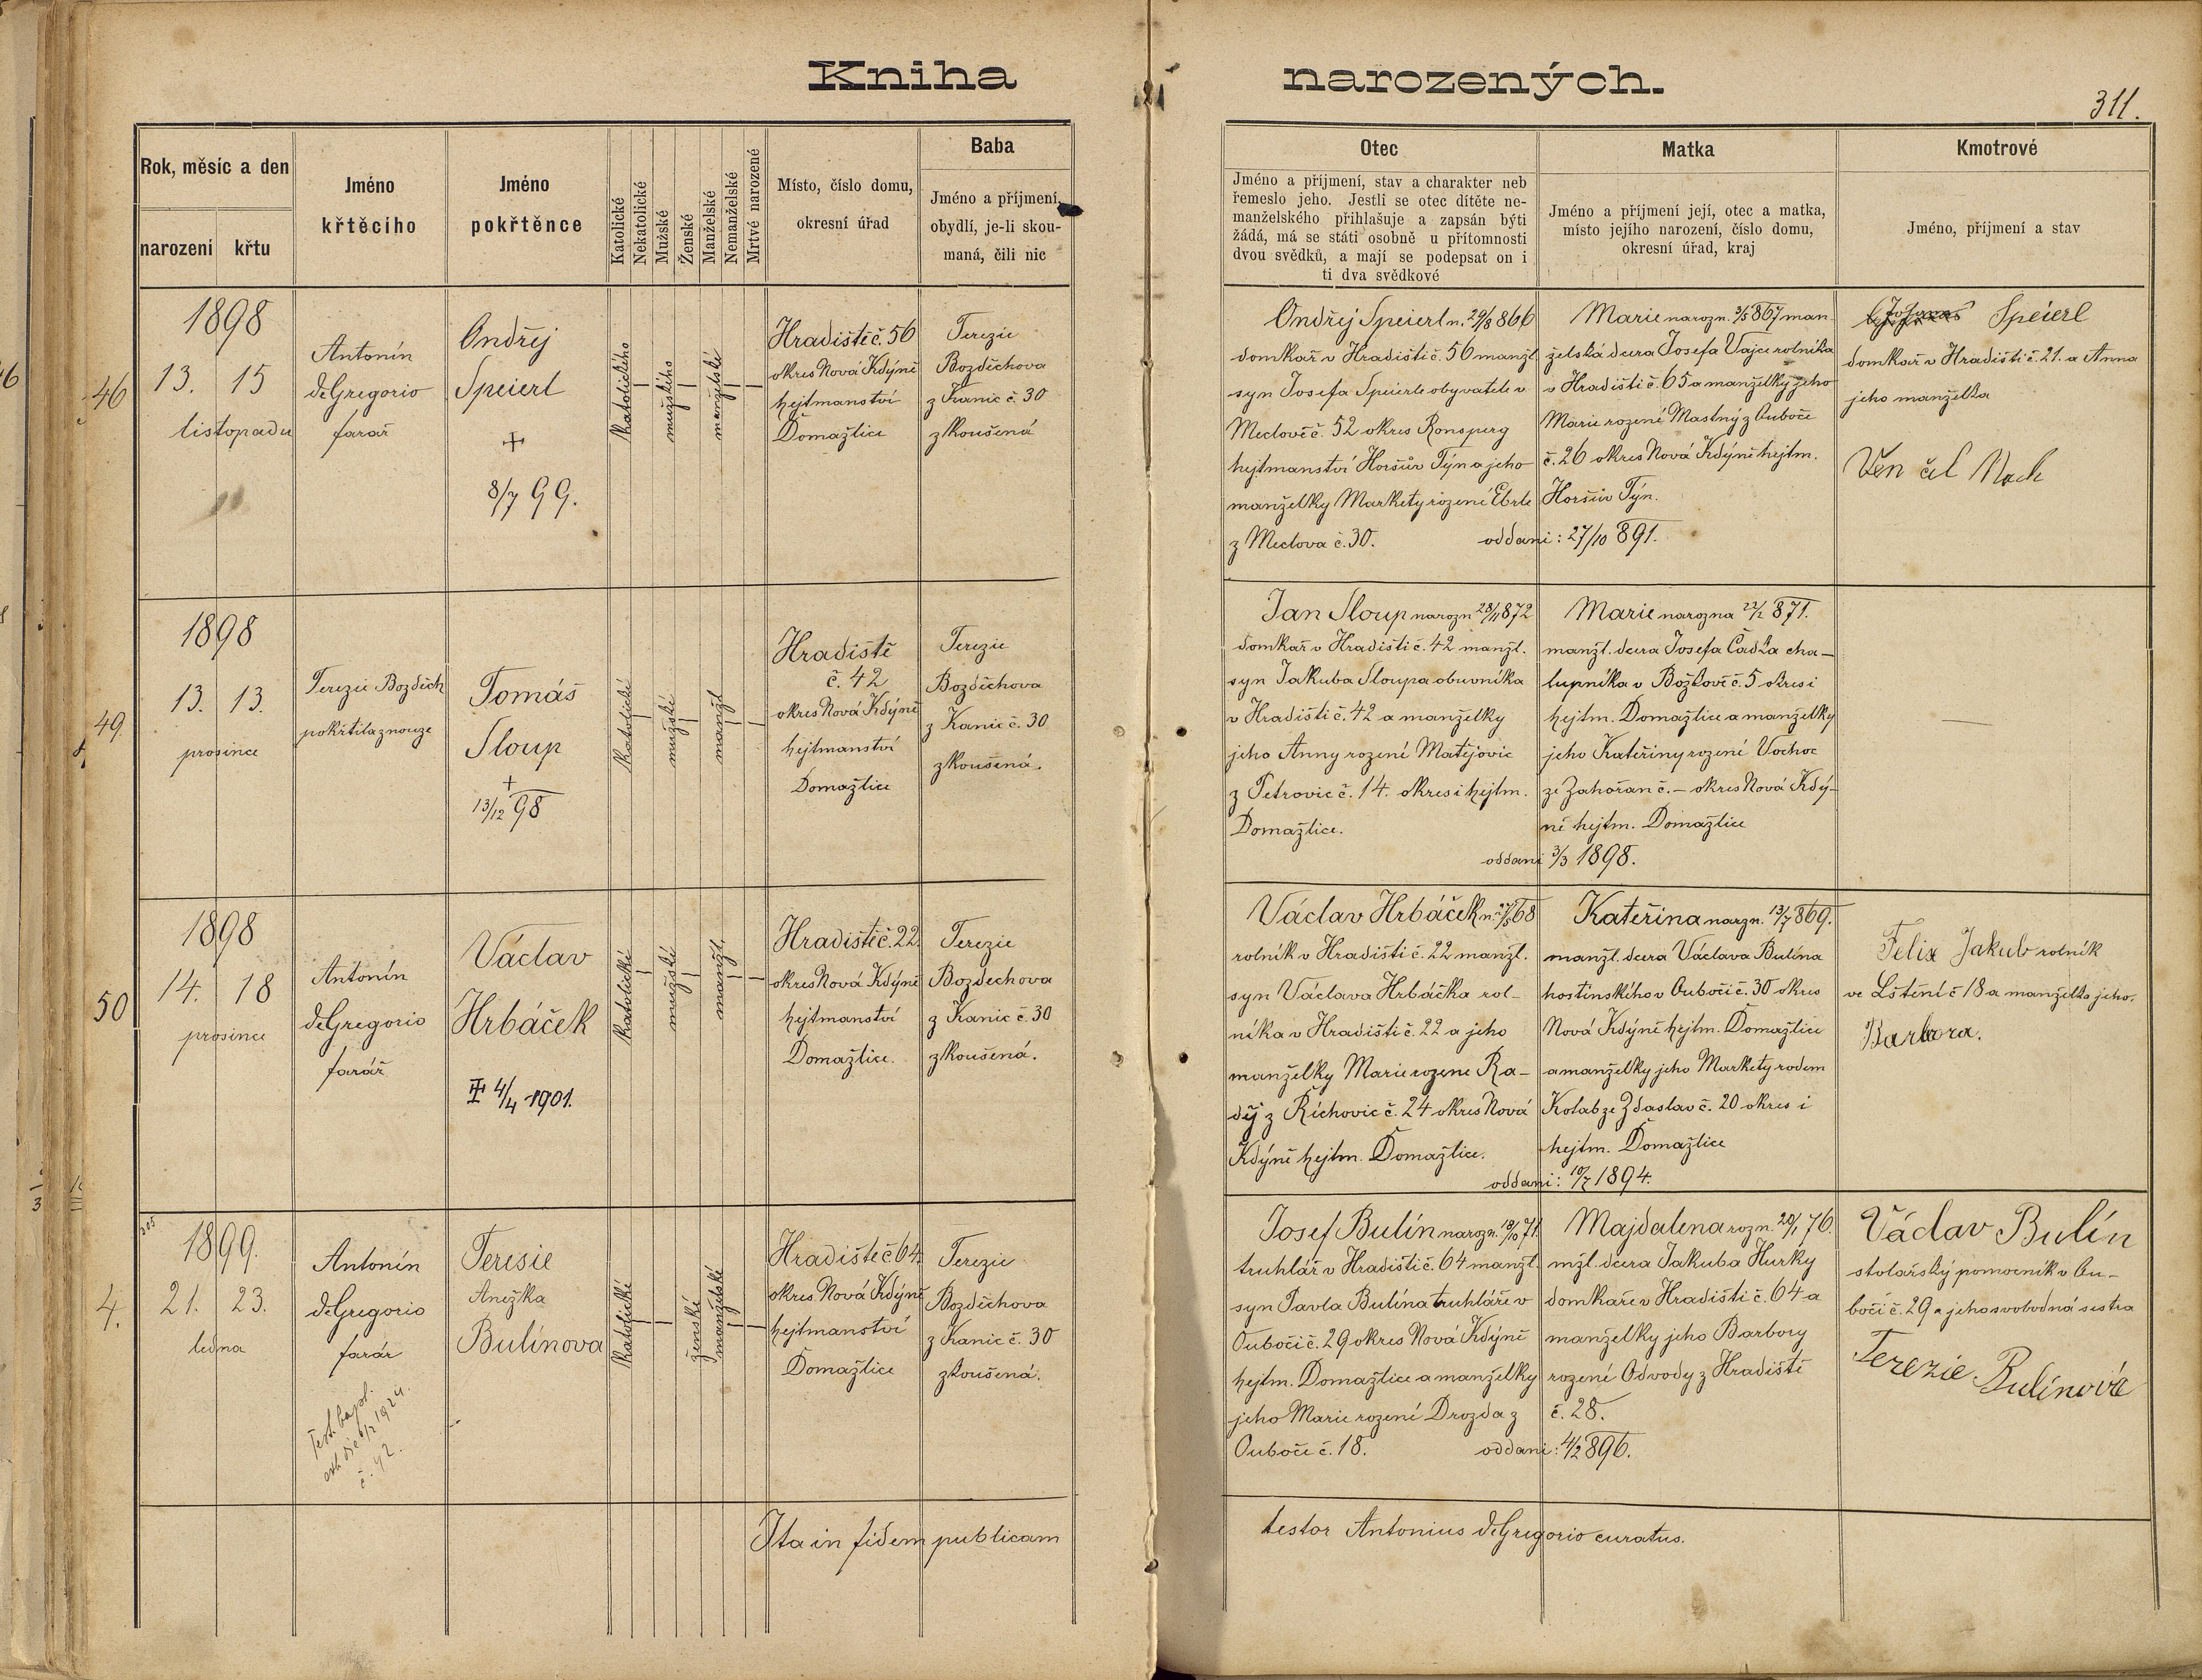 Kniha narozených.
311.
Rok, měsíc a den
narození
křtu
Jméno
křtěcího
Jméno
pokřtěnce
Katolické
Nekatolické
Mužské
Ženské
Manželské
Nemanželské
Mrtvé narozené
Místo, číslo domu,
okresní úřad
Baba
Jméno a příjmení,
obydlí, je-li skou-
maná, čili nic
Otec
Jméno a příjmení, stav a charakter neb
řemeslo jeho. Jestli se otec dítěte ne-
manželského přihlašuje a zapsán býti
žádá, má se státi osobně u přítomnosti
dvou svědků, a mají se podepsat on i
ti dva svědkové
Matka
Jméno a příjmení její, otec a matka,
místo jejího narození, číslo domu,
okresní úřad, kraj
Kmotrové
Jméno, příjmení a stav
46
1898
13. 15
listopadu
Antonín
deGregorio
farař
Ondřej
Speierl
+
8/7 99.
katolického
mužského
manželské
Hradiště č. 56
okres Nová Kdýně
hejtmanství
Domažlice
Terezie
Bozděchova
z Kanic č. 30
zkoušená
Ondřej Speierl n. 29/8 866
domkař v Hradišti č. 56 manžl.
syn Josefa Speierle obyvatele v
Meclově č. 52 okres Ronsperg
hejtmanství Horšův Týn a jeho
manželky Markety rozené Eberle
z Meclova č. 30.
Marie narozn. 3/5 867 man
želská dcera Josefa Vajce rolníka
v Hradišti č. 65 a manželky jeho
Marie rozené Mastný z Ouboče
č. 26 okres Nová Kdýně hejtm.
Horšův Týn.
oddani: 27/10 891.
Speierl
domkař v Hradišti č. 21. a Anna
jeho manželka
49.
1898
13. 13.
prosince
Terezie Bozděch
pokřtila z nouze
Tomáš
Sloup
+
13/12 98
katolické
mužské
manžl
Hradiště
č. 42
okres Nová Kdýně
hejtmanství
Domažlice
Terezie
Bozděchova
z Kanic č. 30
zkoušená.
Jan Sloup narozn 28/11 872
domkař v Hradišti č. 42 manžl.
syn Jakuba Sloupa obuvníka
v Hradišti č. 42 a manželky
jeho Anny rozené Matějovic
z Petrovic č. 14. okres i hejtm.
Domažlice.
Marie narozna 22/2 871.
manžl. dcera Josefa Čadka cha-
lupníka v Božkově č. 5 okres i
hejtm. Domažlice a manželky
jeho Kateřiny rozené Vochoc
ze Zahořan č. – okres Nová Kdý-
ně hejtm. Domažlice
oddani 3/3 1898.
50
1898
14. 18
prosince
Antonín
deGregorio
farář
Václav
Hrbáček
4/4 1901.
katolické
mužské
manžl.
Hradiště č. 22.
okres Nová Kdýně
hejtmanství
Domažlice.
Terezie
Bozděchova
z Kanic č. 30
zkoušená.
Václav Hrbáček n. 27/5 68
rolník v Hradišti č. 22 manžl.
syn Václava Hrbáčka rol-
níka v Hradišti č. 22 a jeho
manželky Marie rozene Ra-
děj z Říchovic č. 24 okres Nová
Kdýně hejtm. Domažlice.
Kateřina narzn. 13/7 869.
manžl. dcera Václava Bulína
hostinského v Ouboči č. 30 okres
Nová Kdýně hejtm. Domažlice
a manželky jeho Markety rodem
Kolab ze Zdaslav č. 20 okres i
hejtm. Domažlice
oddani: 10/7 1894.
Felix Jakub rolník
ve Lštění č 18 a manželka jeho.
Barbora.
305
4.
1899.
21. 23.
ledna
Antonín
deGregorio
farár
Test. bapt.
č. 42.
Teresie
Anežka
Bulínova
katolické
ženské
manželské
Hradiště č 64.
okres. Nová Kdýně
hejtmanství
Domažlice
Terezie
Bozděchova
z Kanic č. 30
zkoušená.
Josef Bulín narozn. 18/10 71.
truhlář v Hradišti č. 64 manžl.
syn Pavla Bulína truhláře v
Ouboči č. 29 okres Nová Kdýně
hejtm. Domažlice a manželky
jeho Marie rozené Drozda z
Ouboče č. 18.
Majdalena rozn. 20/1 76.
mžl. dcera Jakuba Hurky
domkaře v Hradišti č. 64 a
manželky jeho Barbory
rozené Odvody z Hradiště
č. 28.
oddani: 4/2 896.
Václav Bulín
stolařský pomocník v Ou-
boči č. 29 a jeho svobodná sestra
Terezie Bulínová
Ita in fidem publicam
testor Antonius deGregorio curatus.